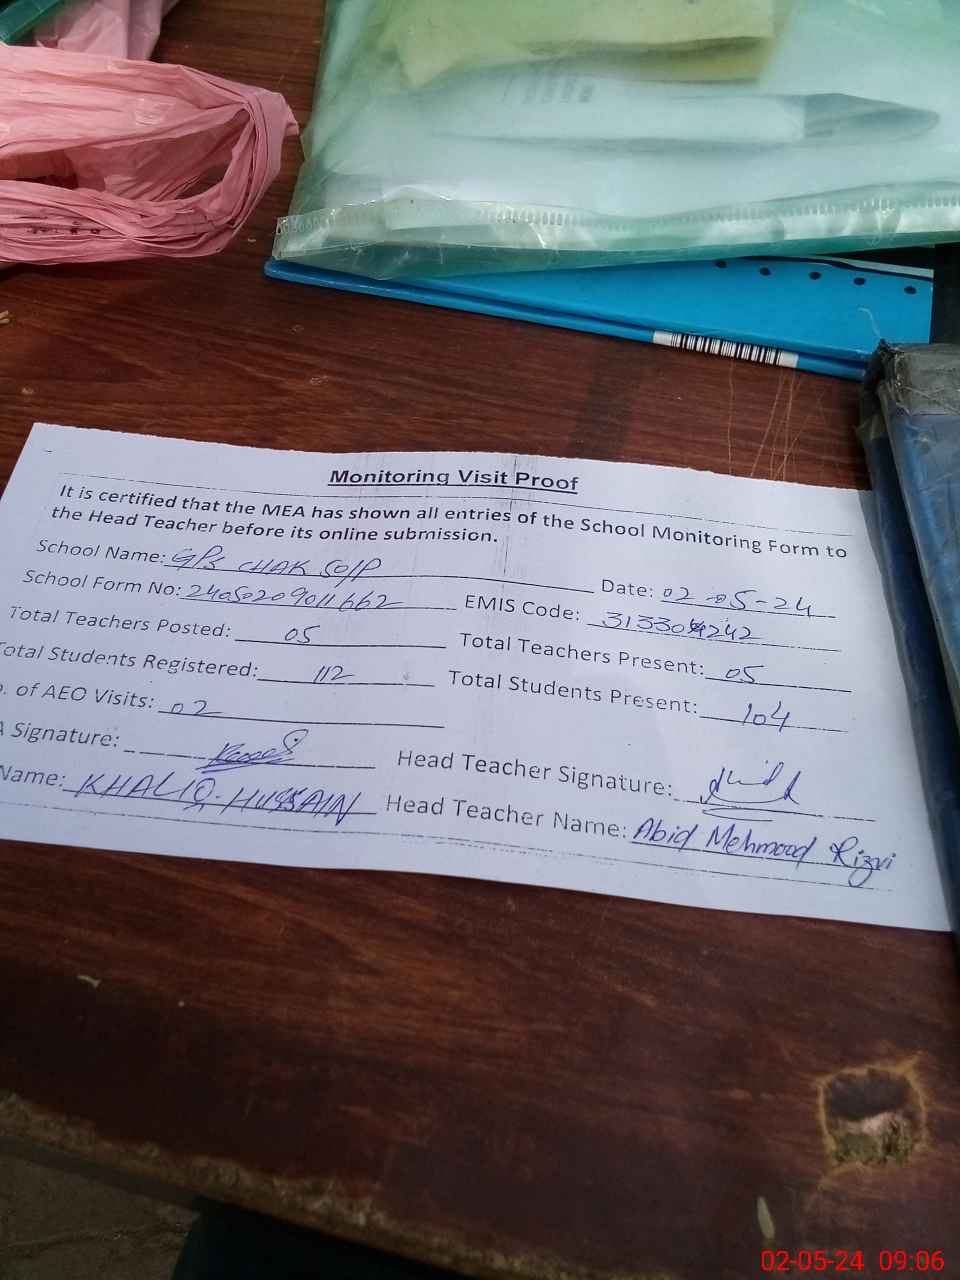 Monitoring Visit Proof
It is certified that the MEA has shown all entries of the School Monitoring Form to
the Head Teacher before its online submission.
School Name: GPS CHAK 50/P Date: 02-05-24
School Form No: 24050209011662 EMIS Code: 313304242
Total Teachers Posted: 05 Total Teachers Present: 05
Total Students Registered: 112 Total Students Present: 104
. of AEO Visits: 02
A Signature: Head Teacher Signature:
Name: KHALIQ HUSSAIN Head Teacher Name: Abid Mehmood Rizvi
02-05-24 09:06